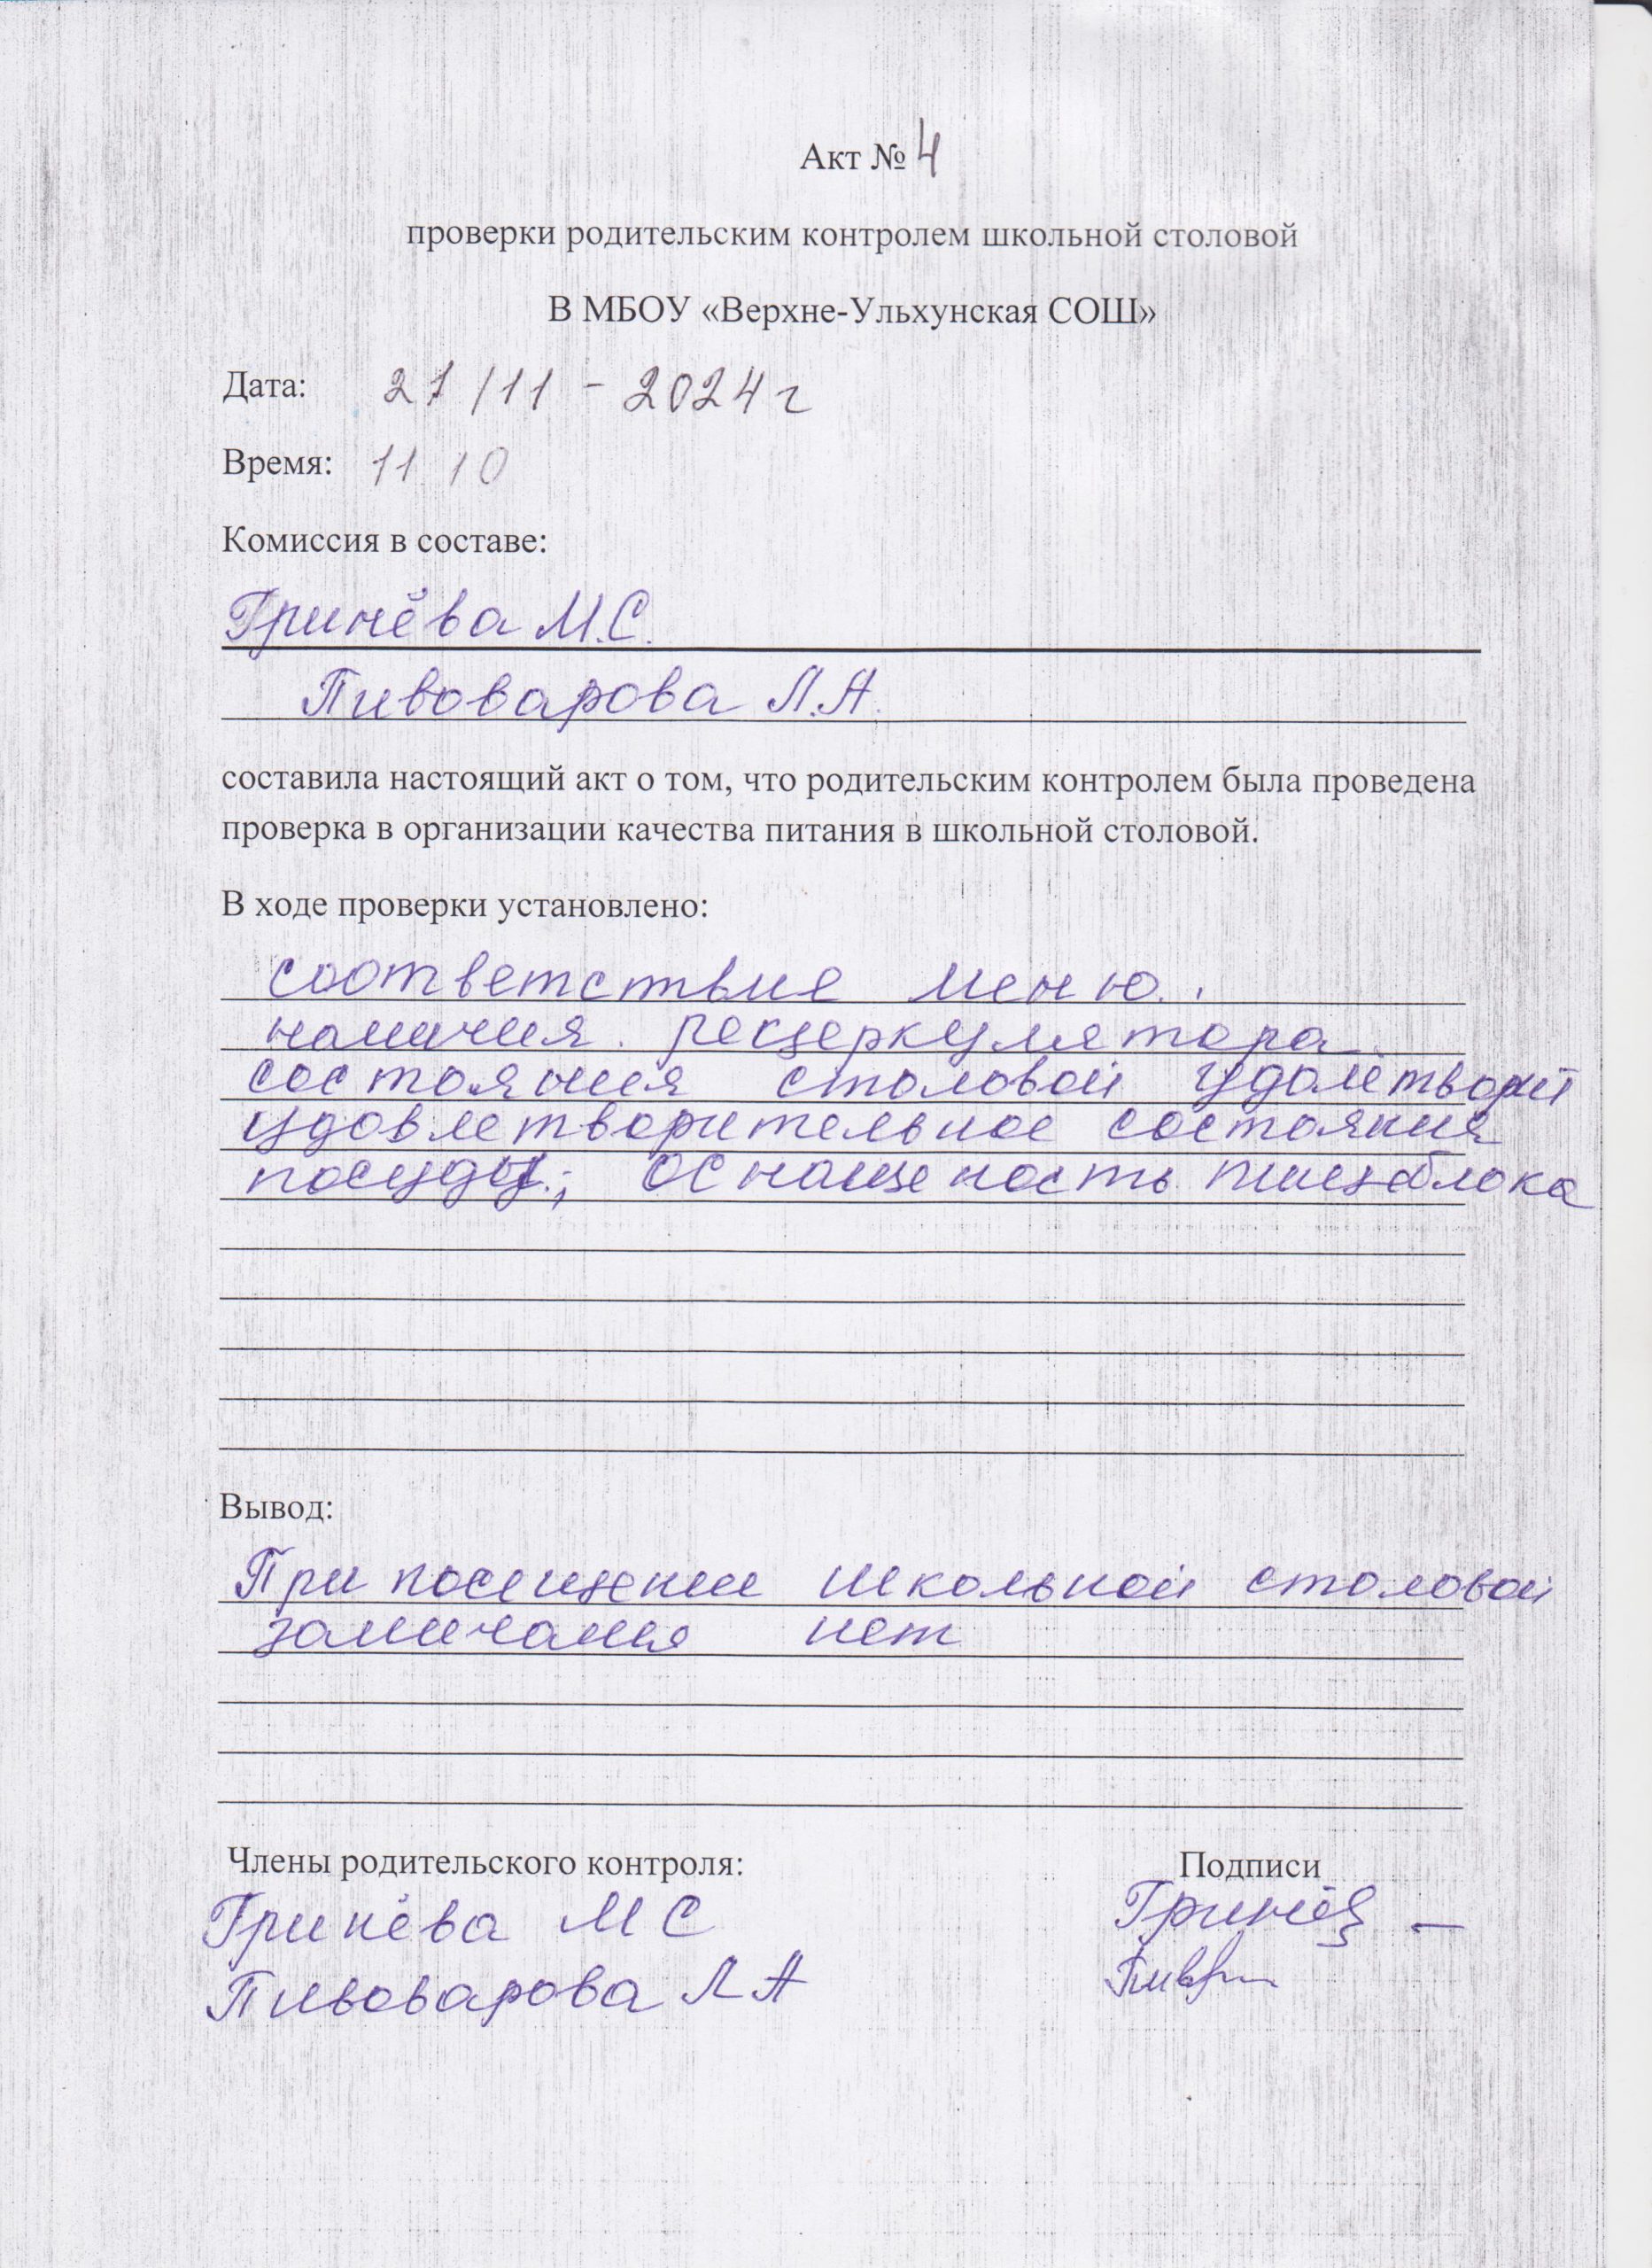 Акт № 4
проверки родительским контролем школьной столовой
В МБОУ «Верхне-Ульхунская СОШ»
Дата: 27/11 - 2024 г
Время: 11.10
Комиссия в составе:
Гринёва М.С.
Пивоварова Л.А.
составила настоящий акт о том, что родительским контролем была проведена
проверка в организации качества питания в школьной столовой.
В ходе проверки установлено:
соответствие меню.
наличия рецеркулятора
состояния столовой
удовлетворительное состояния
посуды; оснащеность пищеблока
Вывод:
При посещении школьной столовой
замичания нет
Члены родительского контроля: Подписи
Гринёва М С Гринёв
Пивоварова Л А